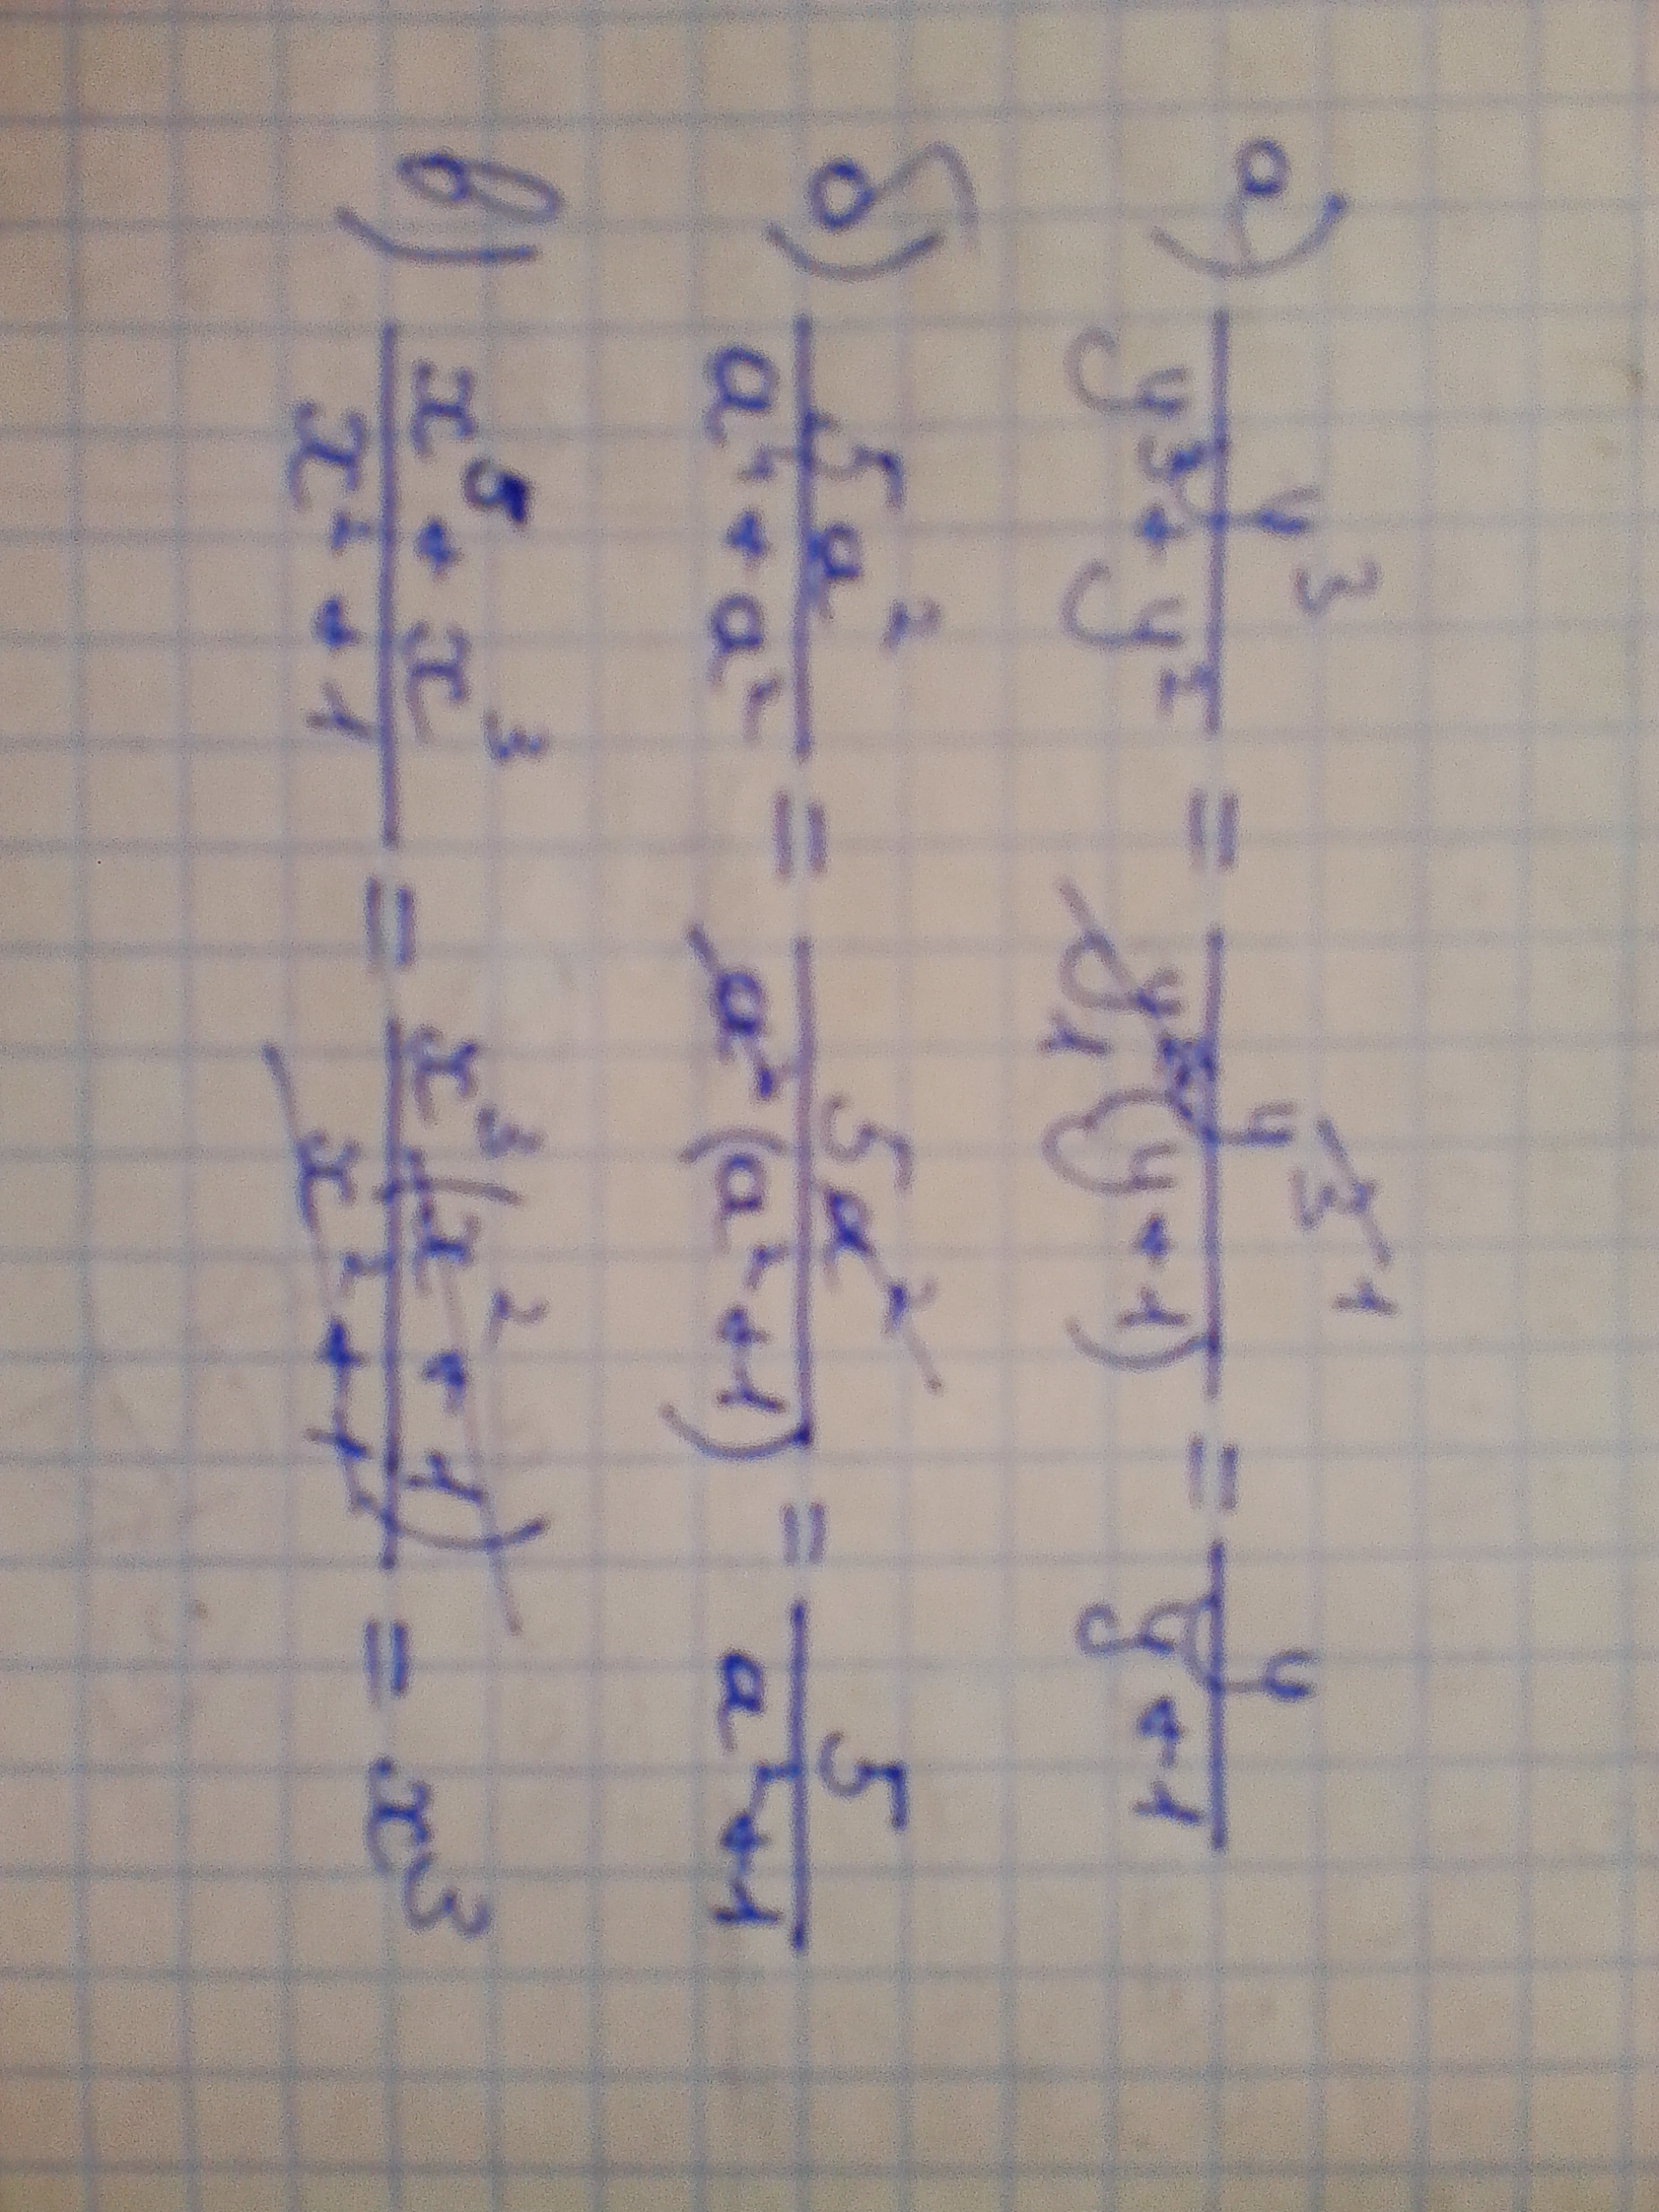 а) y³/(y³ + y²) = y³ ¹/(y² ₁(y + 1)) = y/(y + 1)
б) 5a²/(a⁴ + a²) = 5a²/(a²(a² + 1)) = 5/(a² + 1)
в) (x⁵ + x³)/(x² + 1) = x³(x² + 1)/(x² + 1) = x³